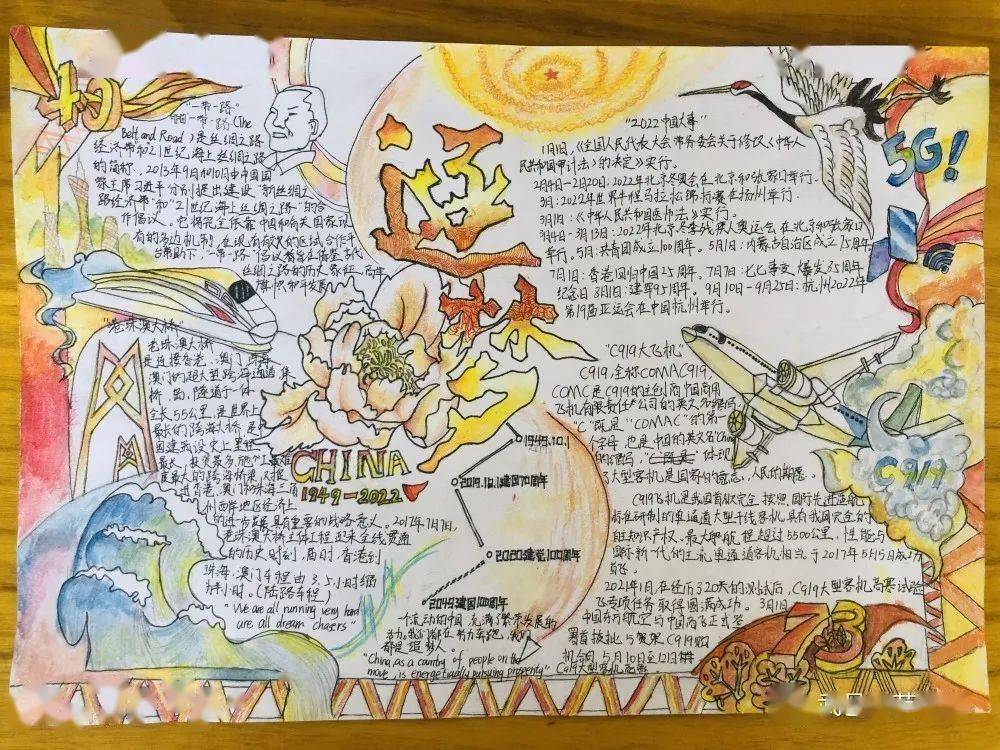 初
"一带一路"
"一带一路"(The
Belt and Road)是丝绸之路
经济带和21世纪海上丝绸之路
的简称,2013年9月和10月由中国国
家主席习近平分别提出建设"新丝绸之
路经济带"和"21世纪海上丝绸之路"的合
作倡议。它将充分依靠中国和有关国家现
有的多边机制,
"一带一路"倡议
丝绸之路的历史
"老珠澳大桥"
老珠澳大桥
是连接香港、澳门、珠海
澳门的超大型跨海通道 集
桥、岛、隧道于一体
全长55公里,是世界上
最长的跨海大桥
国建
往香港、澳门、珠海三
州西岸地区经济上
的进步发展具有重要的战略意义。2017年7月7,
老珠澳大桥主体工程 全线贯通
的历史时刻,届时,香港到
珠海、澳门车程由3.5小时缩
半小时。(陆路车程)
"We are all running very hard
are all dream chasers"
逐梦
CHINA
1949-2022
1949.10.1
2019.10.1建国70周年
2020建党100周年
2049建国100周年
一个流动的中国 充满了繁荣发展的
活力。我们都在努力奔跑,我们
都是追梦人。
"China, as a country of people on the
move, is energetically pursuing prosperity"
"2022中国大事"
1月1日,《全国人民代表大会常务委会关于修改《中华人
民共和国审计法》的决定》实行。
2月4日-2月20日:2022年北京冬奥会在北京和张家口举行.
3月:2022年世界半程马拉松锦标赛在扬州举行.
3月1日:《中华人民共和国医师法》实行。
3月4日-3月13日:2022年北京冬季残疾人奥运会在北京和张家口
举行。5月:共青团成立100周年。5月1日:内蒙古自治区成立75周年
7月1日:香港回归中国25周年。7月7日:七七事变爆发85周年
纪念日 8月1日:建军95周年。9月10日-9月25日:杭州2022年
第19届亚运会在中国杭州举行。
5G!
"C919大飞机"
C919,全称COMAC919,
COMC是C919的主制商中国商用
飞机有限责任公司的英文名缩写
"C"既是"COMAC"的第一
个字母,也是中国的英文名"China
大型客机是国家的意志,人民的期愿。
C919
C919飞机是我国首款完全按照国际先进适航
标准研制的单通道大型干线客机,具有我国完全的
自主知识产权。最大航程超过5500公里,性能与
国际新一代的主流单通道客机相当于2017年5月5日成功
首飞
2021年1月在经历320天的测试后,C919大型客机高寒试验
飞专项任务取得圆满成功。3月1日
中国东方航空与中国商飞正式签
署首批 C919购
机合同,5月10日至12日
C919大型客机
73